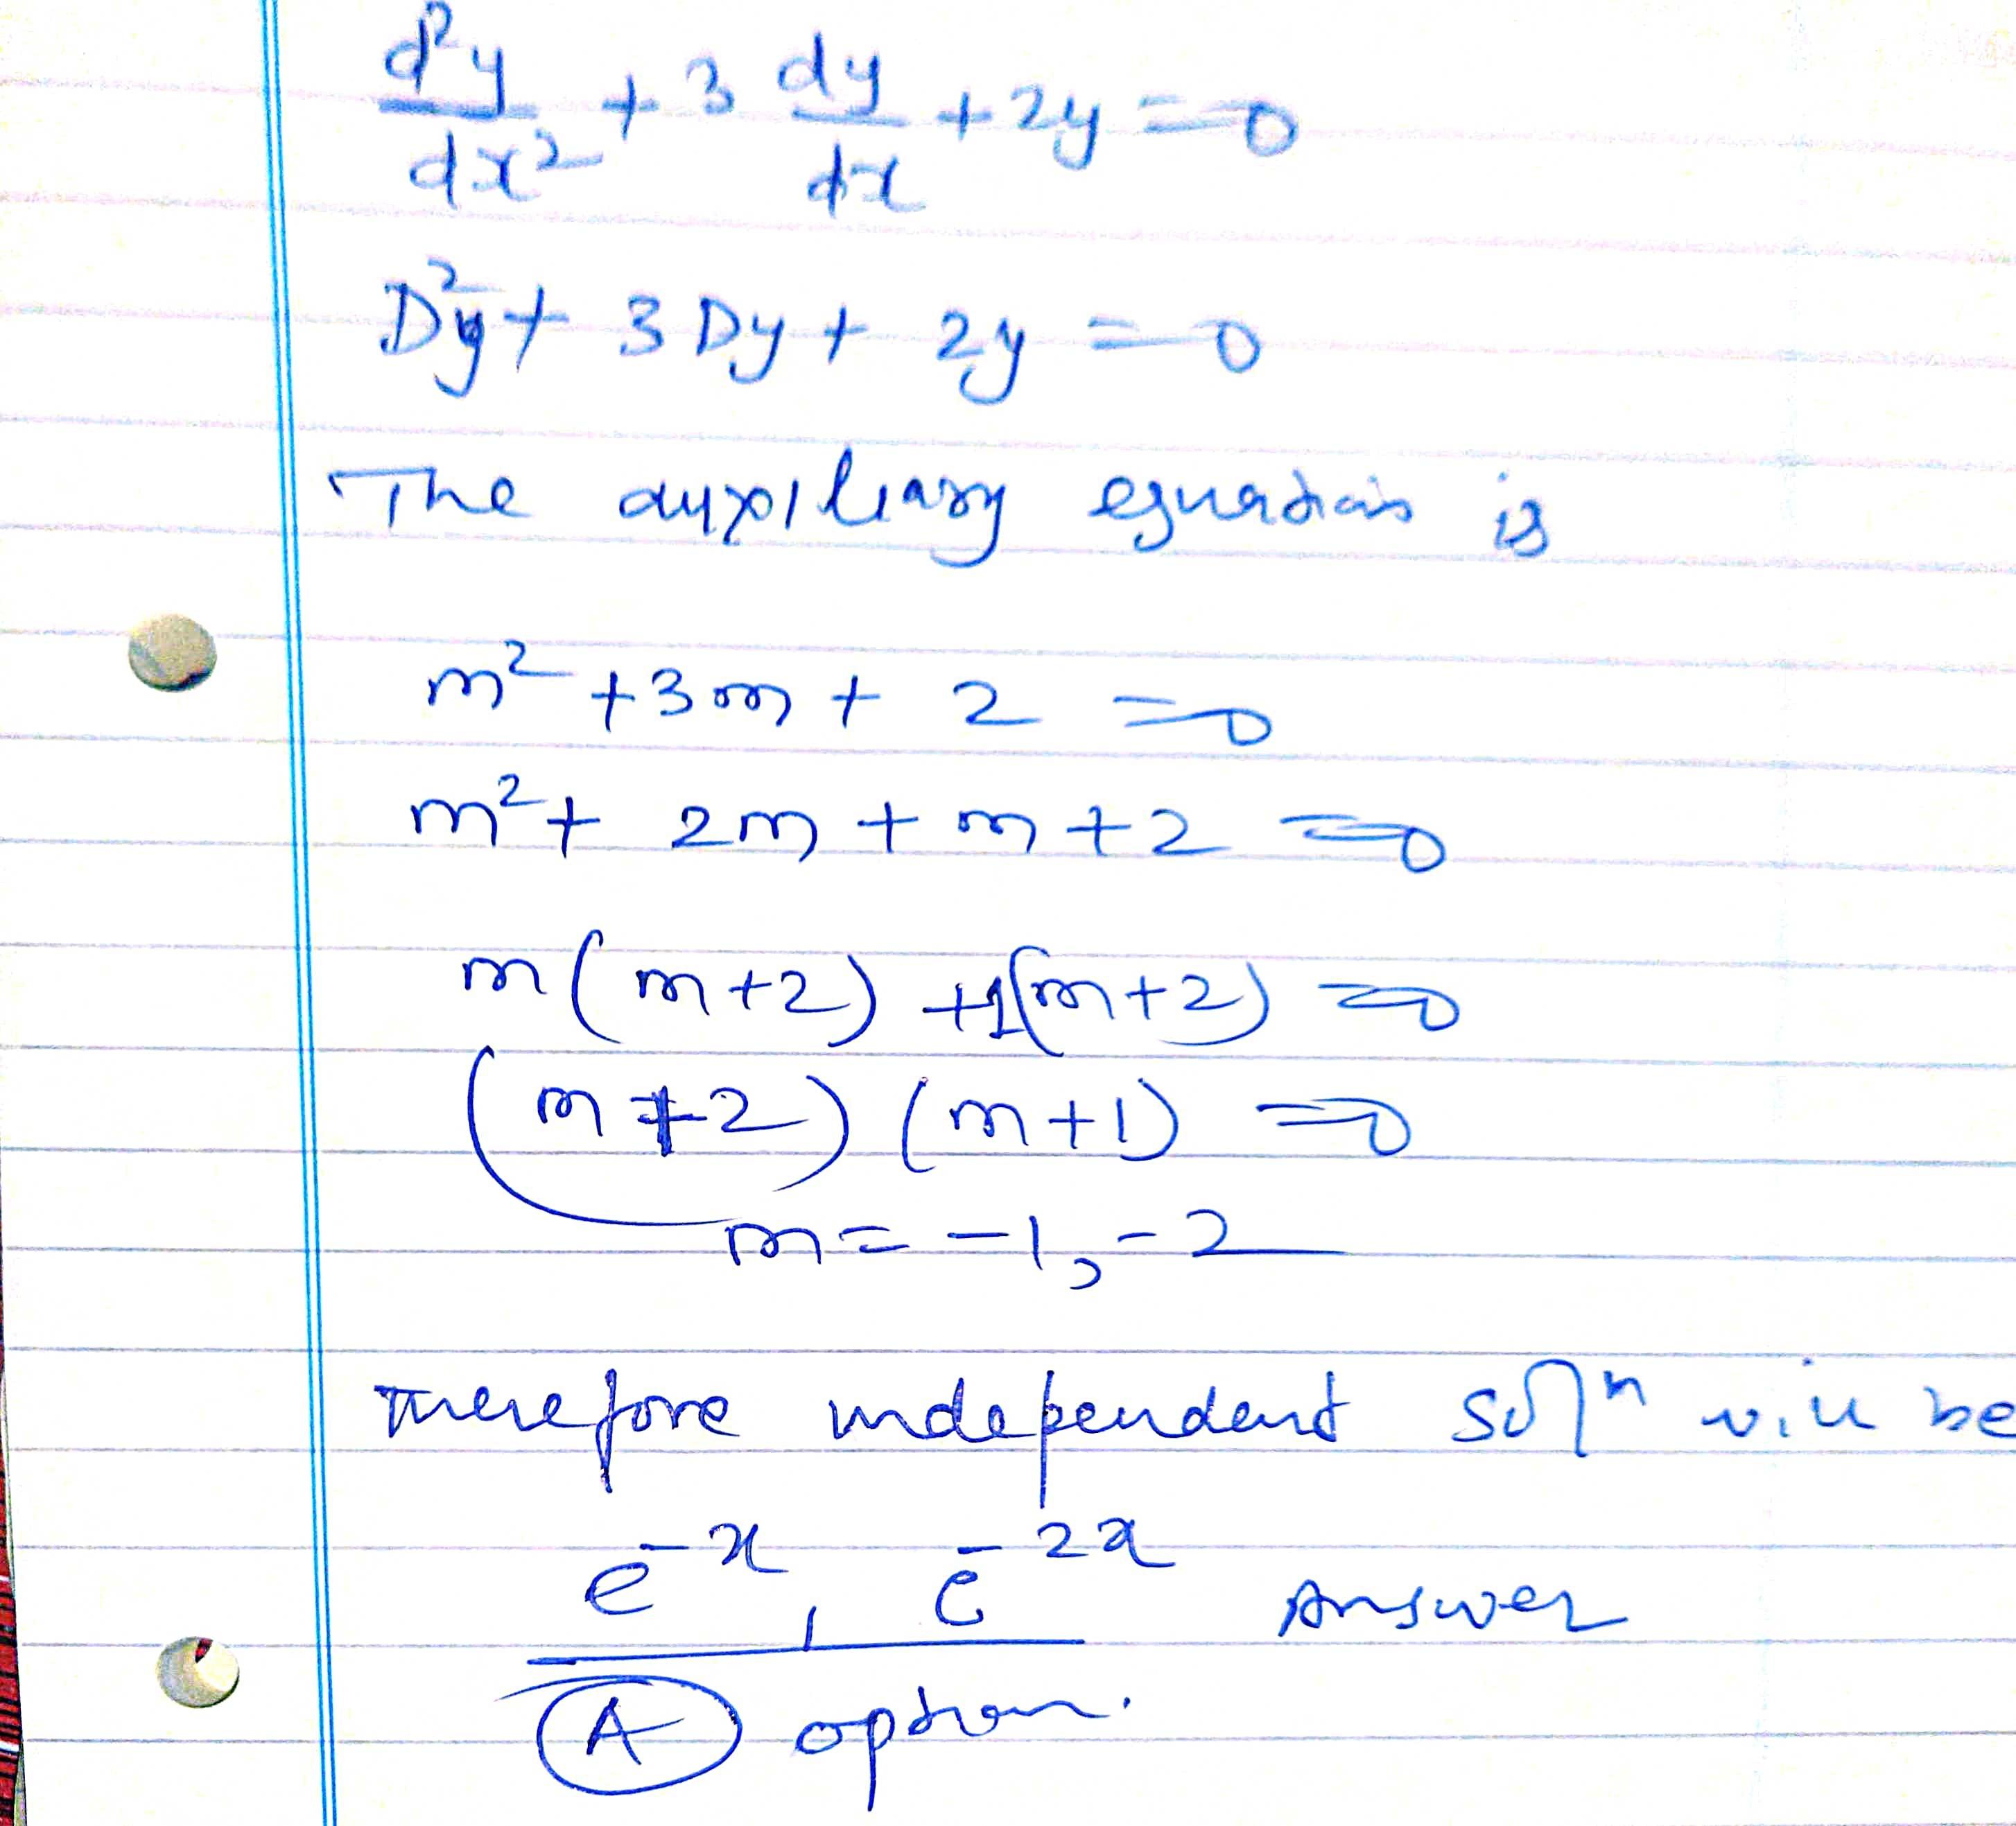 d²y/dx² + 3 dy/dx + 2y = 0
D²y + 3Dy + 2y = 0
The auxiliary equation is
m² + 3m + 2 = 0
m² + 2m + m + 2 = 0
m(m+2) +1(m+2) = 0
(m+2) (m+1) = 0
m = -1, -2
Therefore independent solⁿ will be
e^-x, e^-2x Answer
(A) option.